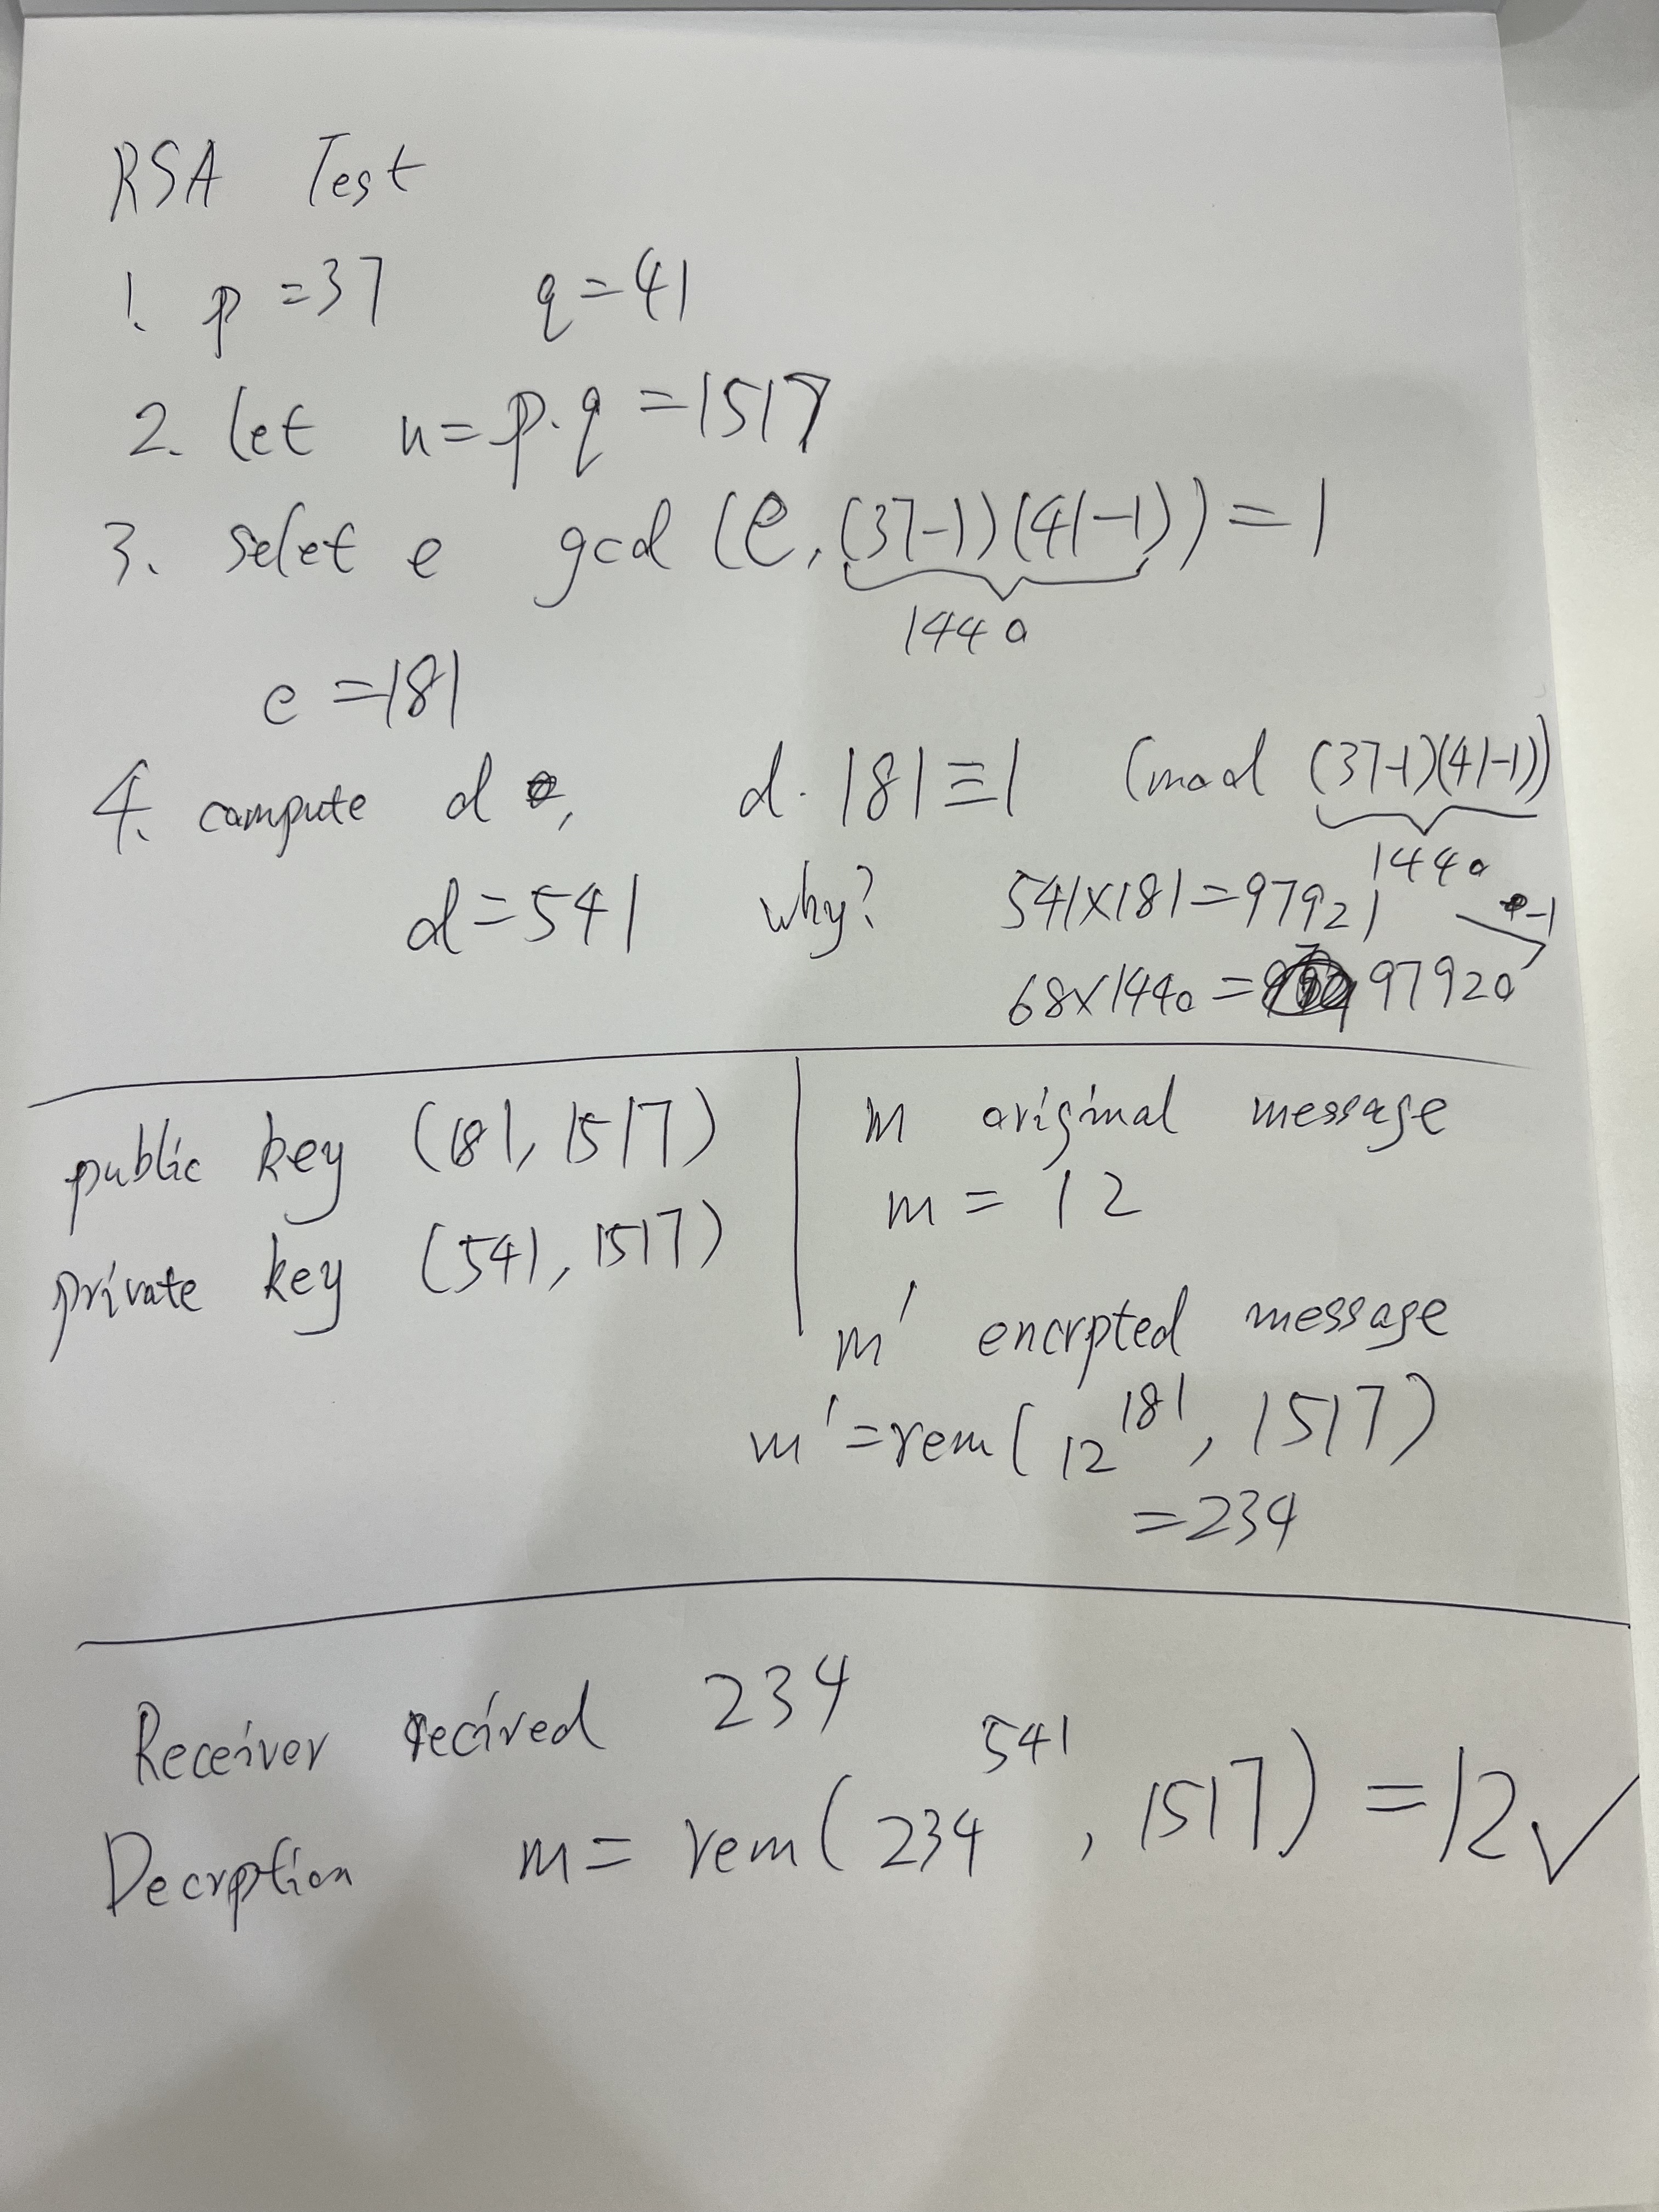 RSA Test
1. p=37 q=41
2. let n=p·q=1517
3. selet e gcd(e,(37-1)(41-1))=1
1440
e=181
4. compute d, d·181≡1 (mod (37-1)(41-1))
1440
d=541 why? 541×181=97921
-1
68×1440=97920
public key (181,1517)
private key (541,1517)
m original message
m=12
m' encrpted message
m'=rem(12^181,1517)
=234
Receiver recived 234
Decrption m=rem(234^541,1517)=12✓